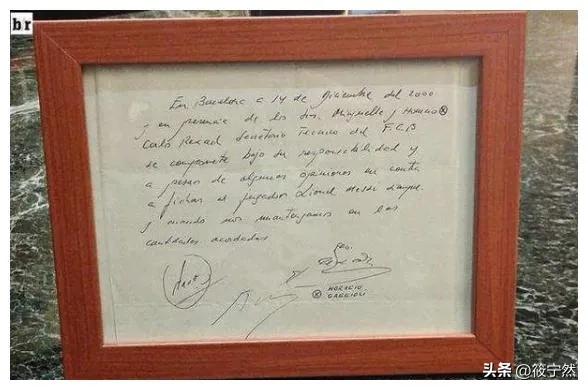 br
En Barcelona a 14 de Diciembre del 2000
y en presencia de los Sres. Minguella y Horacio ⓧ
Carlos Rexach Secretario Técnico del F.C.B
se compromete bajo su responsabilidad y
a pesar de algunas opiniones en contra
a fichar al jugador Lionel Messi siempre
y cuando nos mantengamos en las
cantidades acordadas
ⓧ HORACIO
GAGGIOLI
头条 @筱宁然